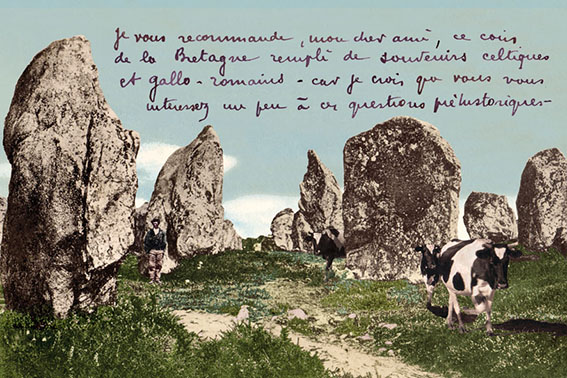 Je vous recommande, mon cher ami, ce coin
de la Bretagne rempli de souvenirs celtiques
et gallo-romains - car je crois que vous vous
intéressez un peu à ces questions préhistoriques-